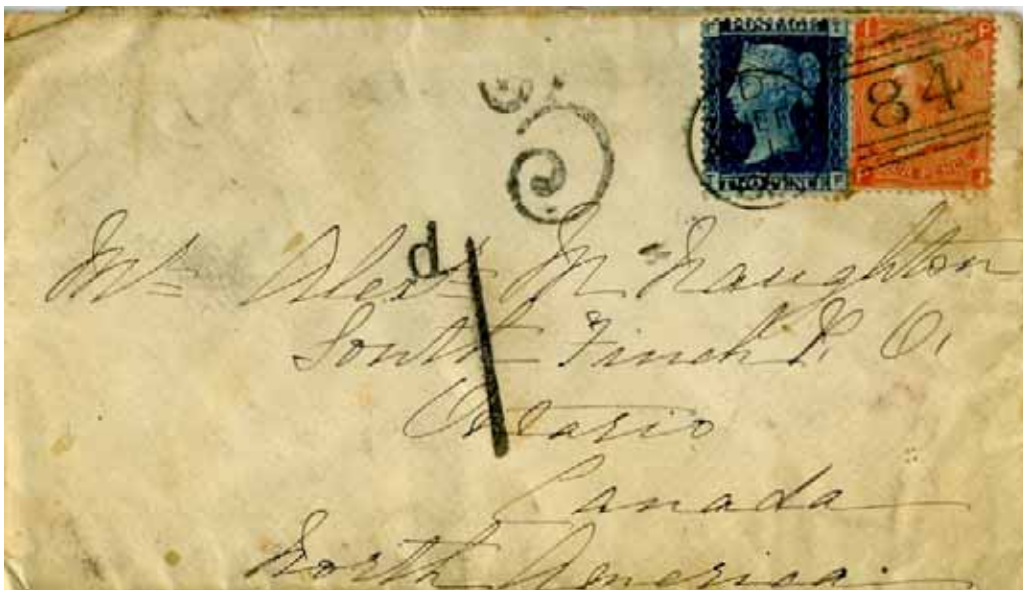 POSTAGE
TWO PENCE
84
d
1
Mr Alexr McNaughton
South Finch P. O.
Ontario
Canada
North America.